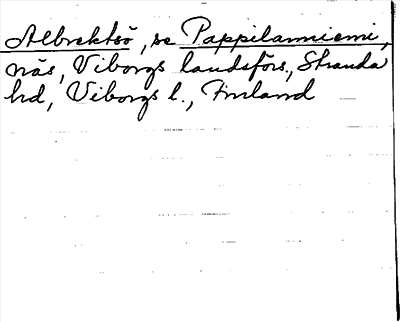 Albrektsö, se Pappilanniemi,
näs, Viborgs landsförs., Stranda
hd, Viborgs l., Finland